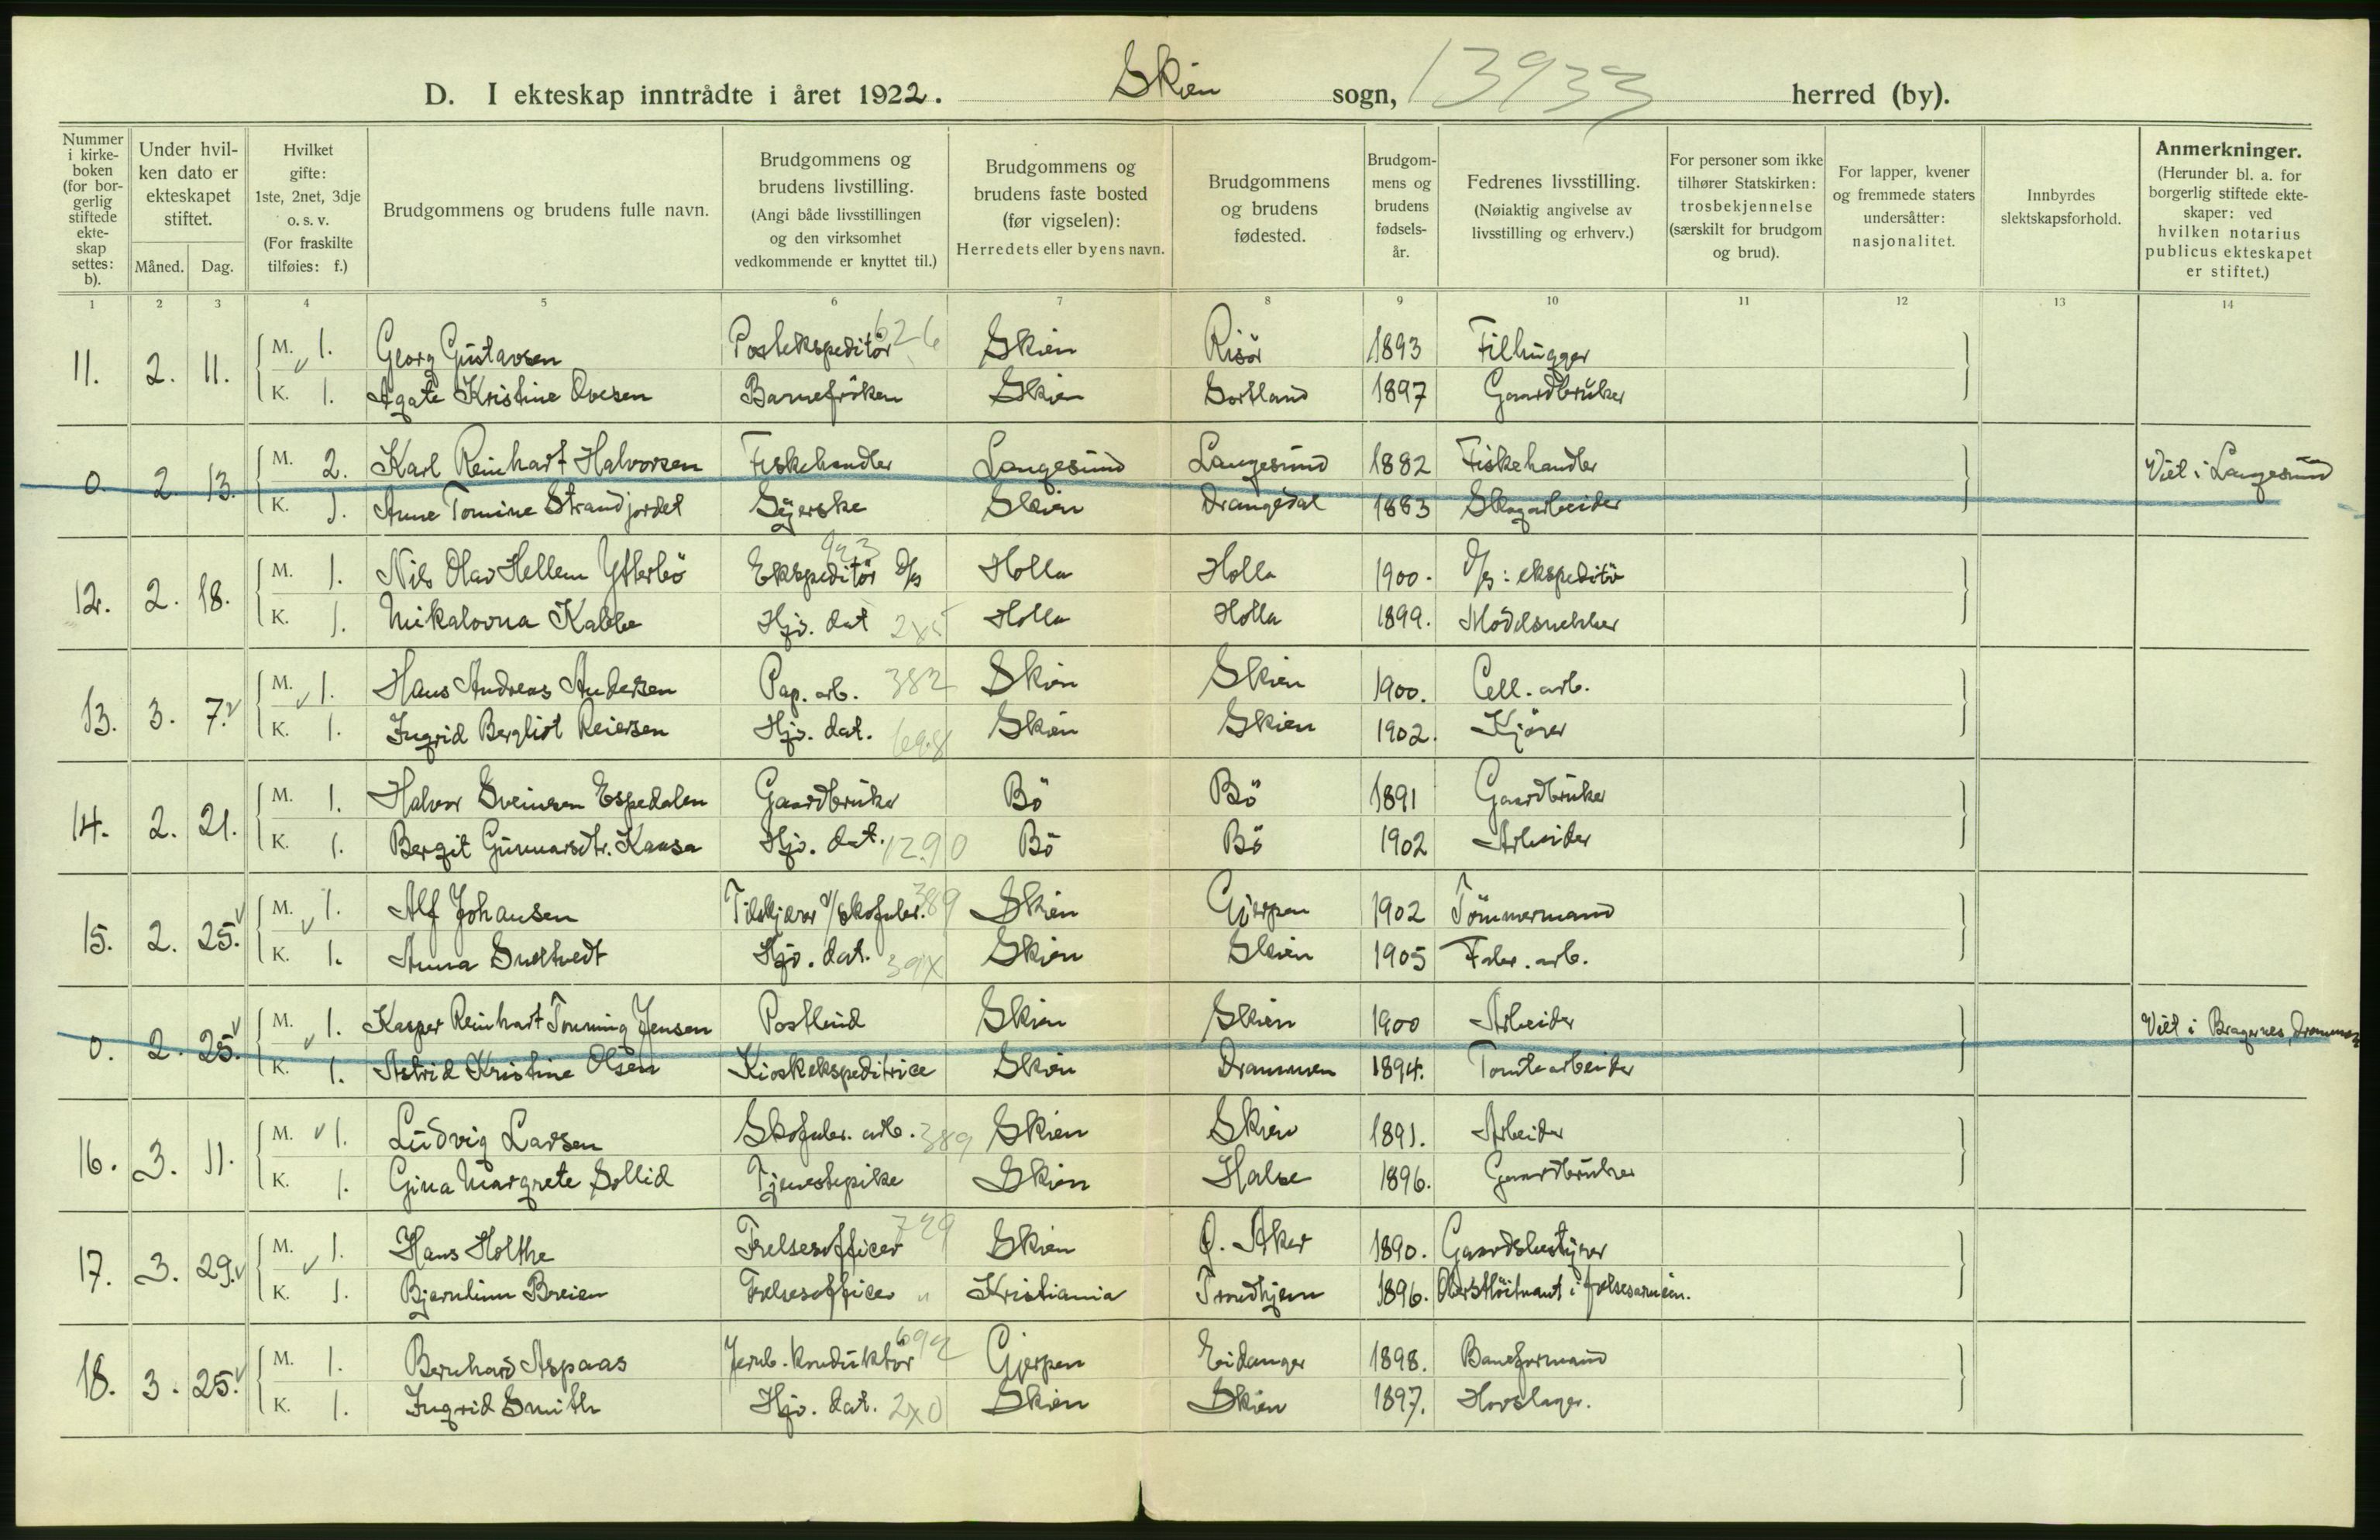 D. I ekteskap inntrådte i året 1922. Skien sogn, 13933 herred (by).
Nummer i kirkeboken (for borgerlig stiftede ekteskap settes: b).
Under hvilken dato er ekteskapet stiftet.
Måned. Dag.
Hvilket gifte: 1ste, 2net, 3dje o. s. v. (For fraskilte tilføies: f.)
Brudgommens og brudens fulle navn.
Brudgommens og brudens livstilling. (Angi både livsstillingen og den virksomhet vedkommende er knyttet til.)
Brudgommens og brudens faste bosted (før vigselen): Herredets eller byens navn.
Brudgommens og brudens fødested.
Brudgommens og brudens fødselsår.
Fedrenes livsstilling. (Nøiaktig angivelse av livsstilling og erhverv.)
For personer som ikke tilhører Statskirken: trosbekjennelse (særskilt for brudgom og brud).
For lapper, kvener og fremmede staters undersåtter: nasjonalitet.
Innbyrdes slektskapsforhold.
Anmerkninger. (Herunder bl. a. for borgerlig stiftede ekteskaper: ved hvilken notarius publicus ekteskapet er stiftet.)
1 2 3 4 5 6 7 8 9 10 11 12 13 14
11. 2. 11. M. 1. Georg Gustavsen Postekspeditör 626 Skien Risör 1893 Filhugger
K. 1. Agate Kristine Ovesen Barnefröken Skien Sortland 1897 Gaardbruker
0. 2. 13. M. 2. Karl Reinhart Halvorsen Fiskehandler Langesund Langesund 1882 Fiskehandler Viet i Langesund
K. 1. Anne Tomine Strandjordet Syerske Skien Drangedal 1883 Skogarbeider
12. 2. 18. M. 1. Nils Olav Hellem Ytterbö Ekspeditör D/s Holla Holla 1900. D/s: ekspeditör
K. 1. Mikalovna Kabbe Hjv. dat Holla Holla 1899. Modelsnekker
13. 3. 7. M. 1. Hans Andreas Andersen Pap. arb. 382 Skien Skien 1900. Cell. arb.
K. 1. Ingrid Bergliot Reiersen Hjv. dat. 698 Skien Skien 1902. Kjörer
14. 2. 21. M. 1. Halvor Sveinsen Espedalen Gaardbruker Bö Bö 1891 Gaardbruker
K. 1. Bergit Gunnarsdtr. Kaasa Hjv. dat. 1290 Bö Bö 1902 Arbeider
15. 2. 25. M. 1. Alf Johansen Tilskjærer v/skofabr. 389 Skien Gjerpen 1902 Tömmermand
K. 1. Anna Sneltvedt Hjv. dat. 39X Skien Skien 1905 Fabr. arb.
0. 2. 25. M. 1. Kasper Reinhart Tonning Jensen Postbud Skien Skien 1900 Arbeider Viet i Bragernes, Drammen
K. 1. Astrid Kristine Olsen Kioskekspeditrice Skien Drammen 1894. Tomtearbeider
16. 3. 11. M. 1. Ludvig Larsen Skofabr. arb. 389 Skien Skien 1891. Arbeider
K. 1. Gina Margrete Sollid Tjenestepike Skien Halse 1896. Gaardbruker
17. 3. 29. M. 1. Hans Holthe Frelsesofficer 729 Skien Ö. Aker 1890. Gaardsbestyrer
K. 1. Bjernlinn Breien Frelsesofficer " Kristiania Trondhjem 1896. Oberstlöitnant i frelsesarmeen.
18. 3. 25. M. 1. Bernhard Aspaas Jernb. konduktör 692 Gjerpen Eidanger 1898. Baneformand
K. 1. Ingrid Smith Hjv. dat. 2X0 Skien Skien 1897. Hovslager.